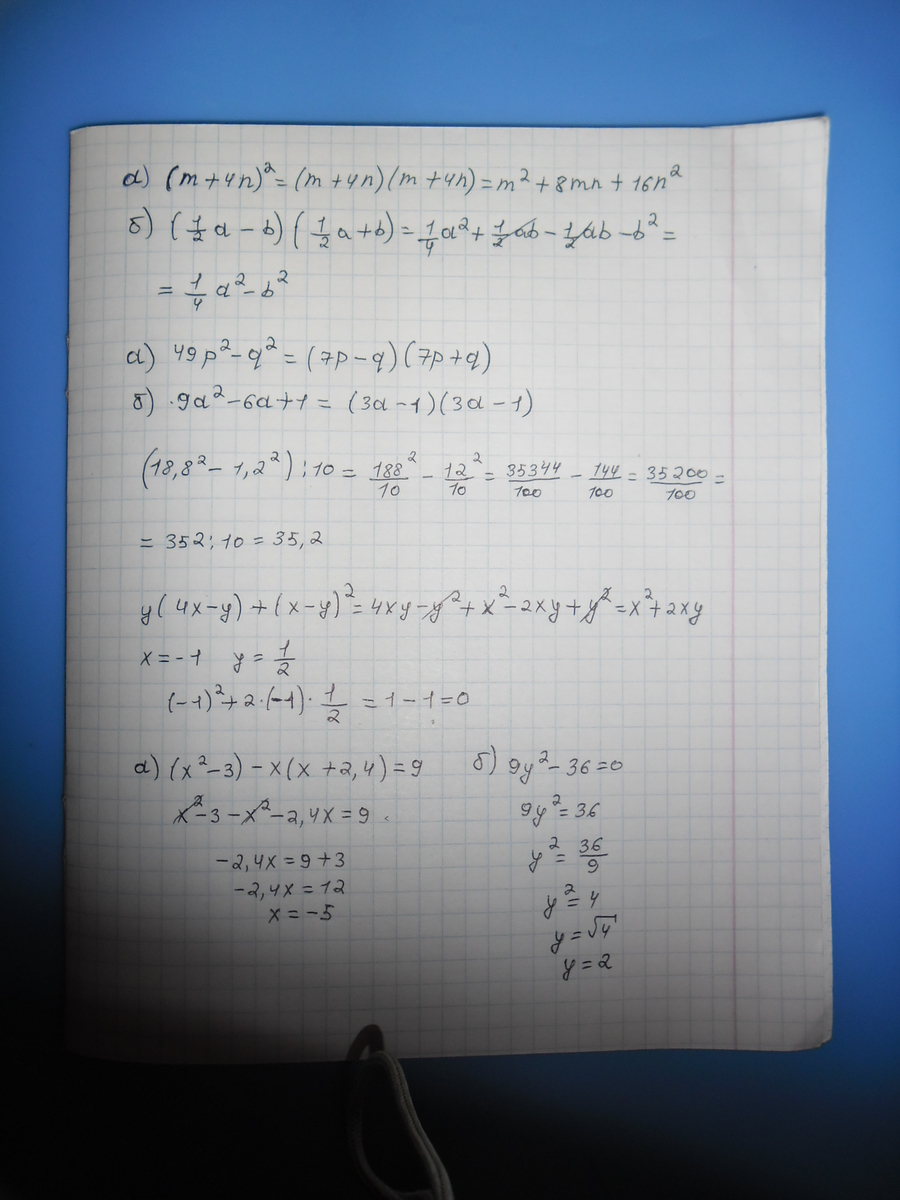 а) (m + 4n)² = (m + 4n)(m + 4n) = m² + 8mn + 16n²
б) (1/2 a - b)(1/2 a + b) = 1/4 a² + 1/2 ab - 1/2 ab - b² =
= 1/4 a² - b²
а) 49p² - q² = (7p - q)(7p + q)
б) 9a² - 6a + 1 = (3a - 1)(3a - 1)
(18,8² - 1,2²) : 10 = 188²/10 - 12²/10 = 35344/100 - 144/100 = 35200/100 =
= 352 : 10 = 35,2
y(4x - y) + (x - y)² = 4xy - y² + x² - 2xy + y² = x² + 2xy
x = -1 y = 1/2
(-1)² + 2·(-1)· 1/2 = 1 - 1 = 0
а) (x² - 3) - x(x + 2,4) = 9
x² - 3 - x² - 2,4x = 9
-2,4x = 9 + 3
-2,4x = 12
x = -5
б) 9y² - 36 = 0
9y² = 36
y² = 36/9
y² = 4
y = √4
y = 2